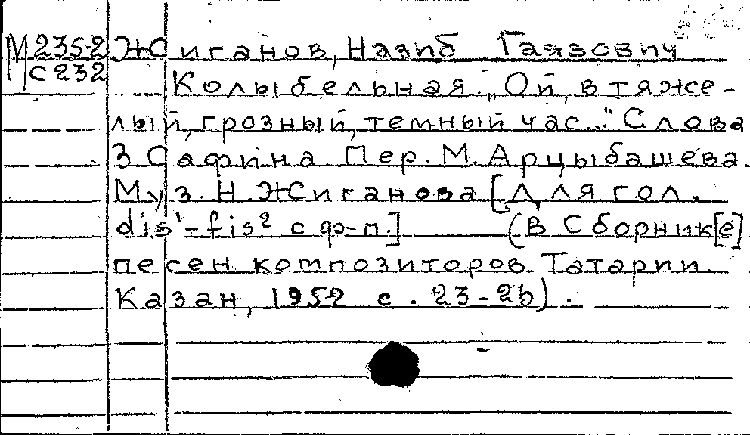 М 235-2 Жиганов, Назиб Гаязович
С 232
Колыбельная. „Ой, в тяже-
лый, грозный, темный час..." Слова
З Сафина. Пер. М. Арцыбашева.
Муз. Н. Жиганова [Для гол.
dis¹-fis² с ф-п.] (В Сборник[е]
песен композиторов Татарии.
Казан, 1952 с. 23-26).